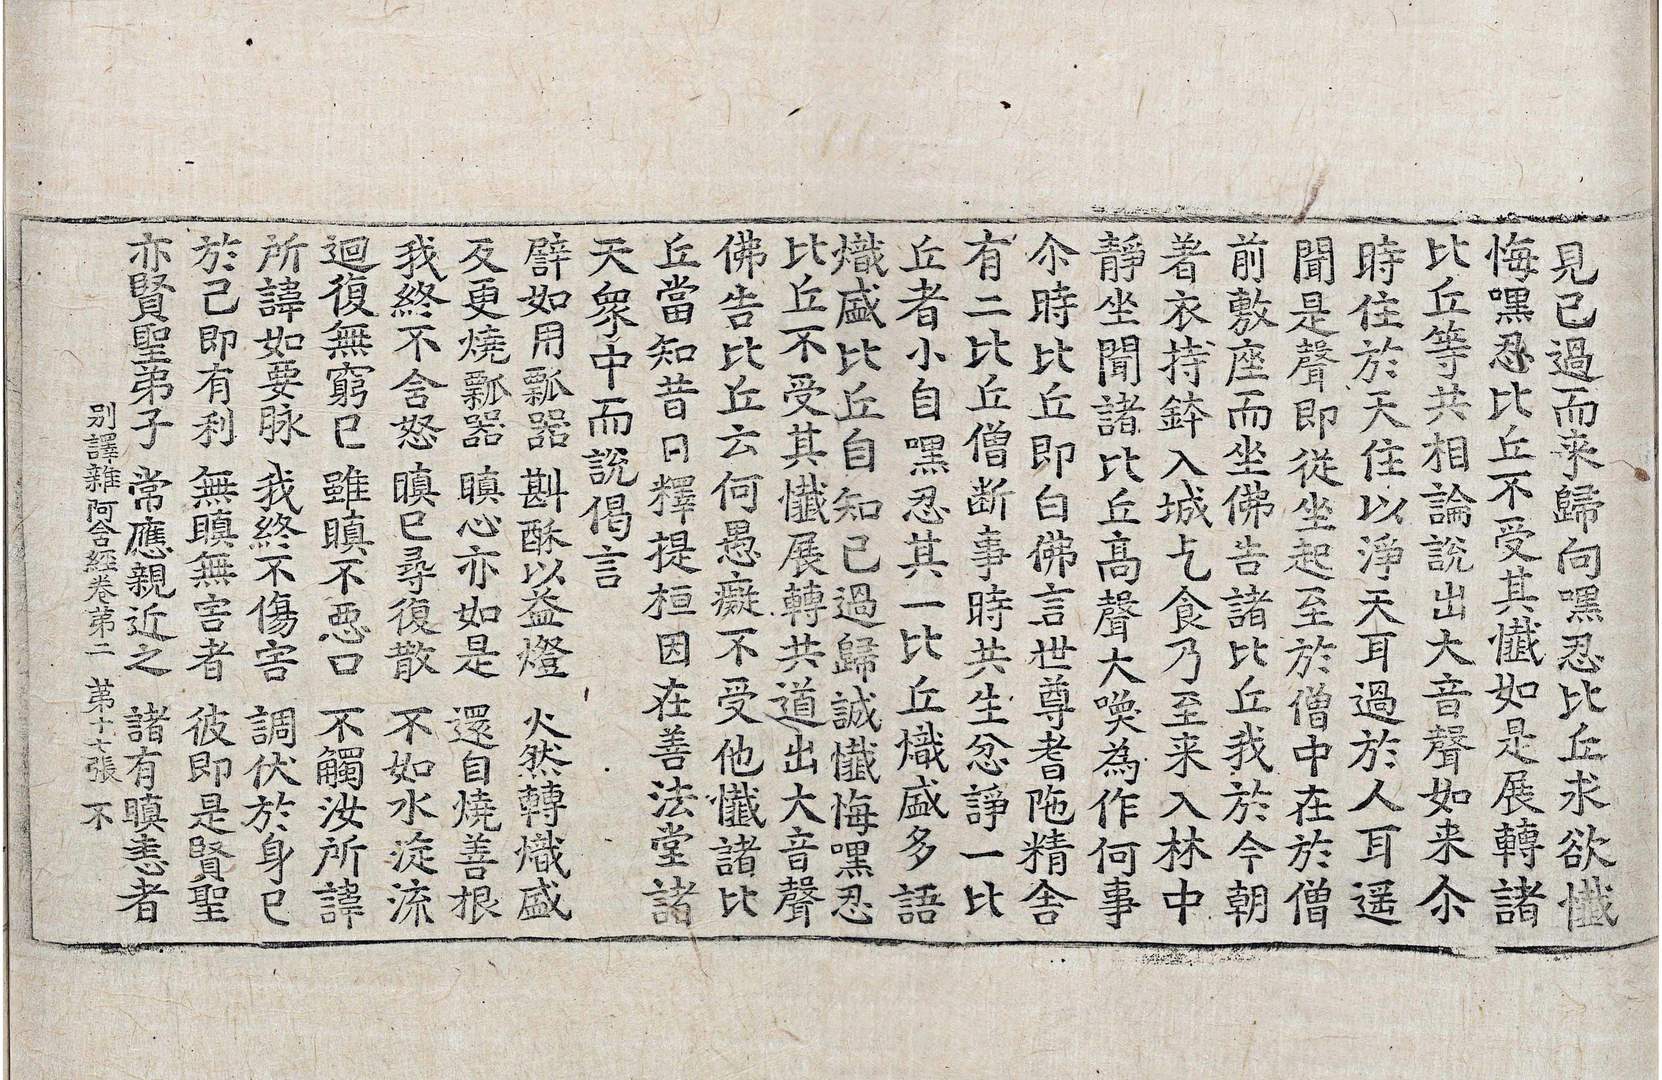 見已過而来歸向嘿忍比丘求欲懺
悔嘿忍比丘不受其懺如是展轉諸
比丘等共相論說出大音聲如来尒
時住於天住以淨天耳過於人耳遥
聞是聲即從坐起至於僧中在於僧
前敷座而坐佛告諸比丘我於今朝
著衣持鉢入城乞食乃至来入林中
靜坐聞諸比丘高聲大喚為作何事
尒時比丘即白佛言世尊耆陁精舍
有二比丘僧断事時共生忿諍一比
丘者小自嘿忍其一比丘熾盛多語
熾盛比丘自知已過歸誠懺悔嘿忍
比丘不受其懺展轉共道出大音聲
佛告比丘云何愚癡不受他懺諸比
丘當知昔日釋提桓因在善法堂諸
天衆中而說偈言
譬如用瓢器 斟酥以益燈 火然轉熾盛
反更燒瓢器 瞋心亦如是 還自燒善根
我終不含怒 瞋已尋復散 不如水漩流
迴復無窮已 雖瞋不惡口 不觸汝所諱
所諱如要脉 我終不傷害 調伏於身已
於己即有利 無瞋無害者 彼即是賢聖
亦賢聖弟子 常應親近之 諸有瞋恚者
别譯雜阿含經卷第二 第十七張 不